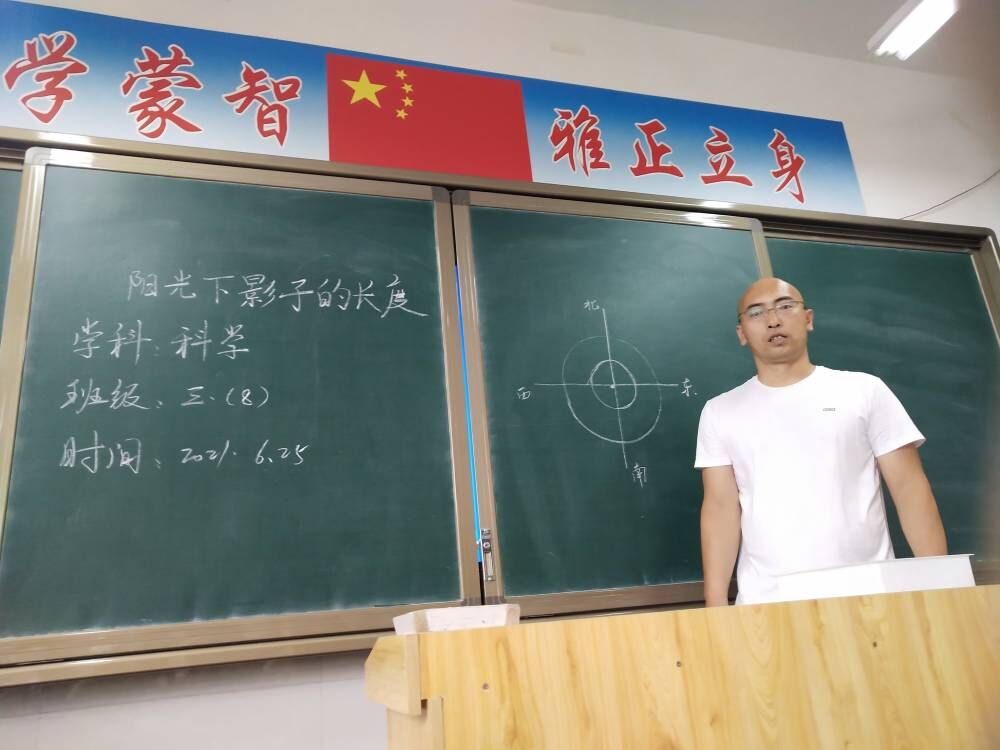 学蒙智
雅正立身
阳光下影子的长度
学科：科学
班级：三.（8）
时间：2021. 6.25
北
西
东
南